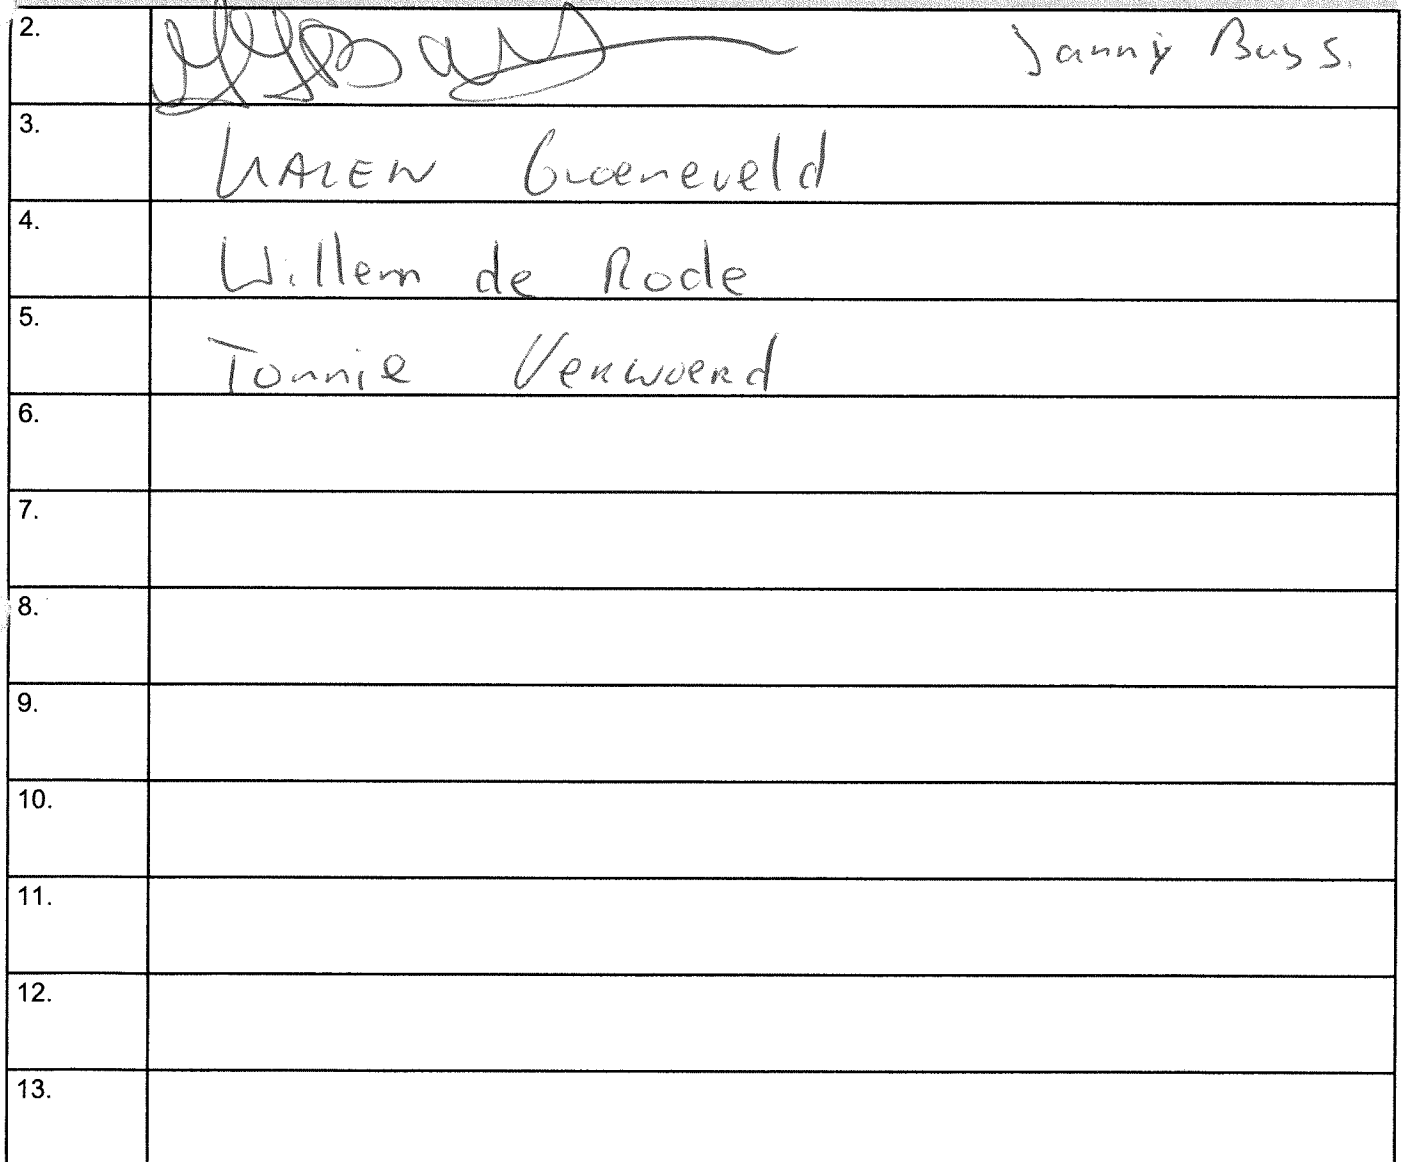 2. Janny Buys.
3. KAREN Groeneveld
4. Willem de Rode
5. Tonnie Verwoerd
6.
7.
8.
9.
10.
11.
12.
13.